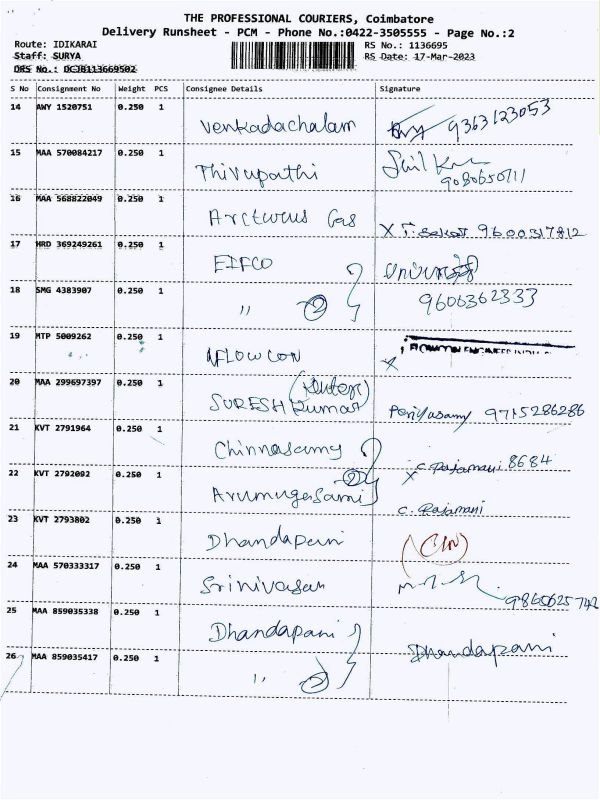 THE PROFESSIONAL COURIERS, Coimbatore
Delivery Runsheet - PCM - Phone No.:0422-3505555 - Page No.:2
Route: IDIKARAI RS No.: 1136695
Staff: SURYA RS Date: 17-Mar-2023
DRS No.: DCJB113669502
S No Consignment No Weight PCS Consignee Details Signature
14 AWY 1520751 0.250 1 Venkadachalam 9363123053
15 MAA 570084217 0.250 1 Thivupathi
9080650711
16 MAA 568822049 0.250 1 Arcturus Gas X T. Sekar 9600317812
17 HRD 369249261 0.250 1 EIFCO
18 SMG 4383907 0.250 1 " 2 9606362333
19 MTP 5009262 0.250 1 NFLOWCON X
20 MAA 299697397 0.250 1 SURESH Kumar Periyasamy 9715286286
21 KVT 2791964 0.250 1 Chinnasamy
22 KVT 2792092 0.250 1 Arumugasami 2 X C. Rajamani 8684
C. Rajamani
23 KVT 2793802 0.250 1 Dhandapani
24 MAA 570333317 0.250 1 Srinivasan
9860625742
25 MAA 859035338 0.250 1 Dhandapani Dhandapani
26 MAA 859035417 0.250 1 " 2